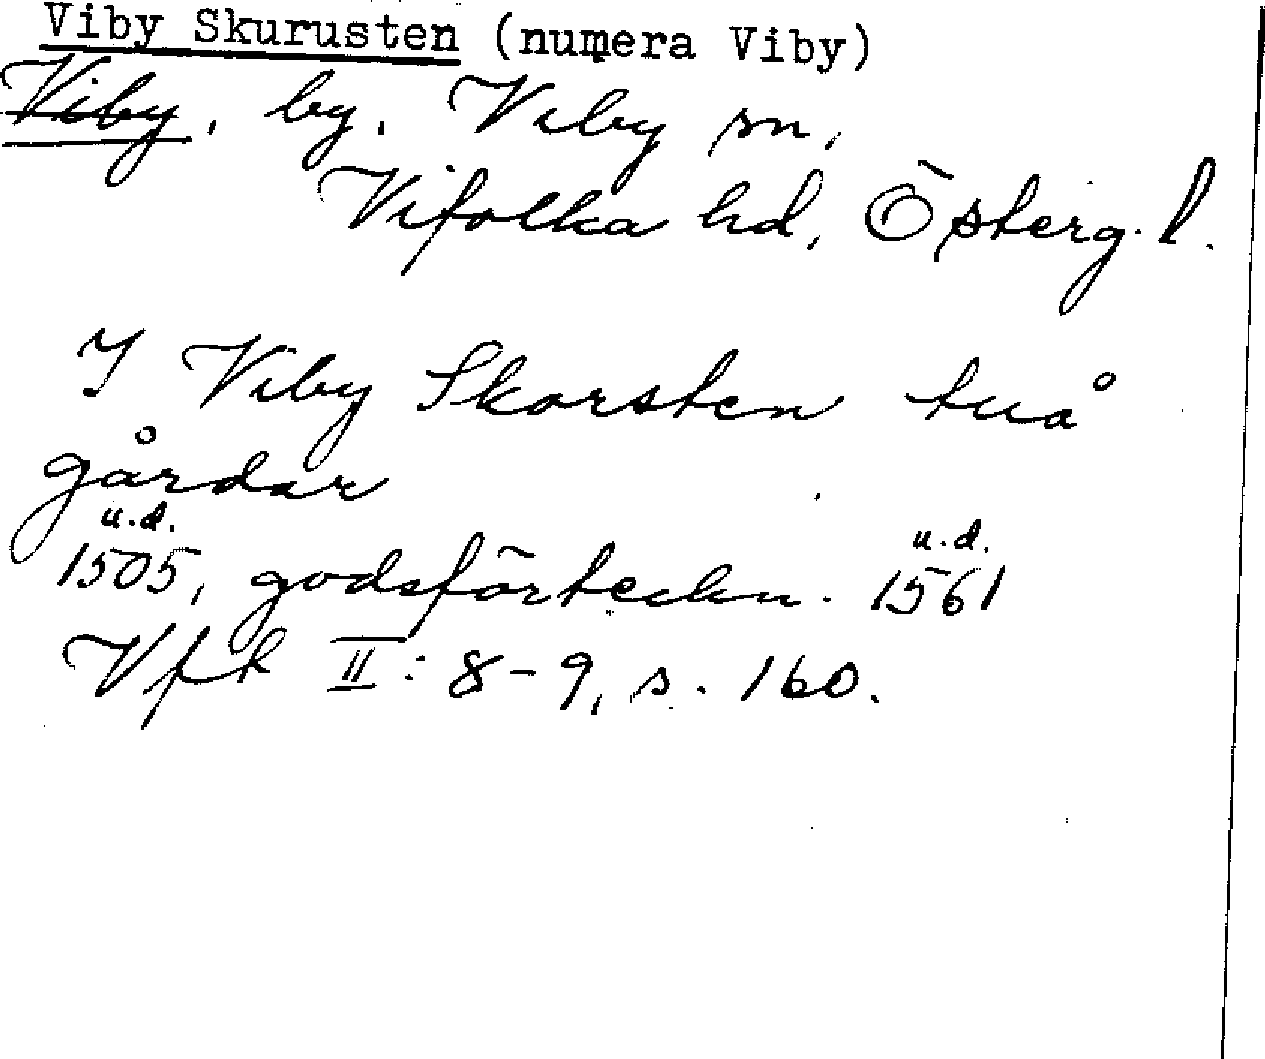 Viby Skurusten (numera Viby)
Viby, by, Viby sn,
Vifolka hd, Österg. l.
I Viby Skorsten tuå
gårdar
u.d. u.d.
1505, godsförteckn. 1561
Vfk II: 8-9, s. 160.